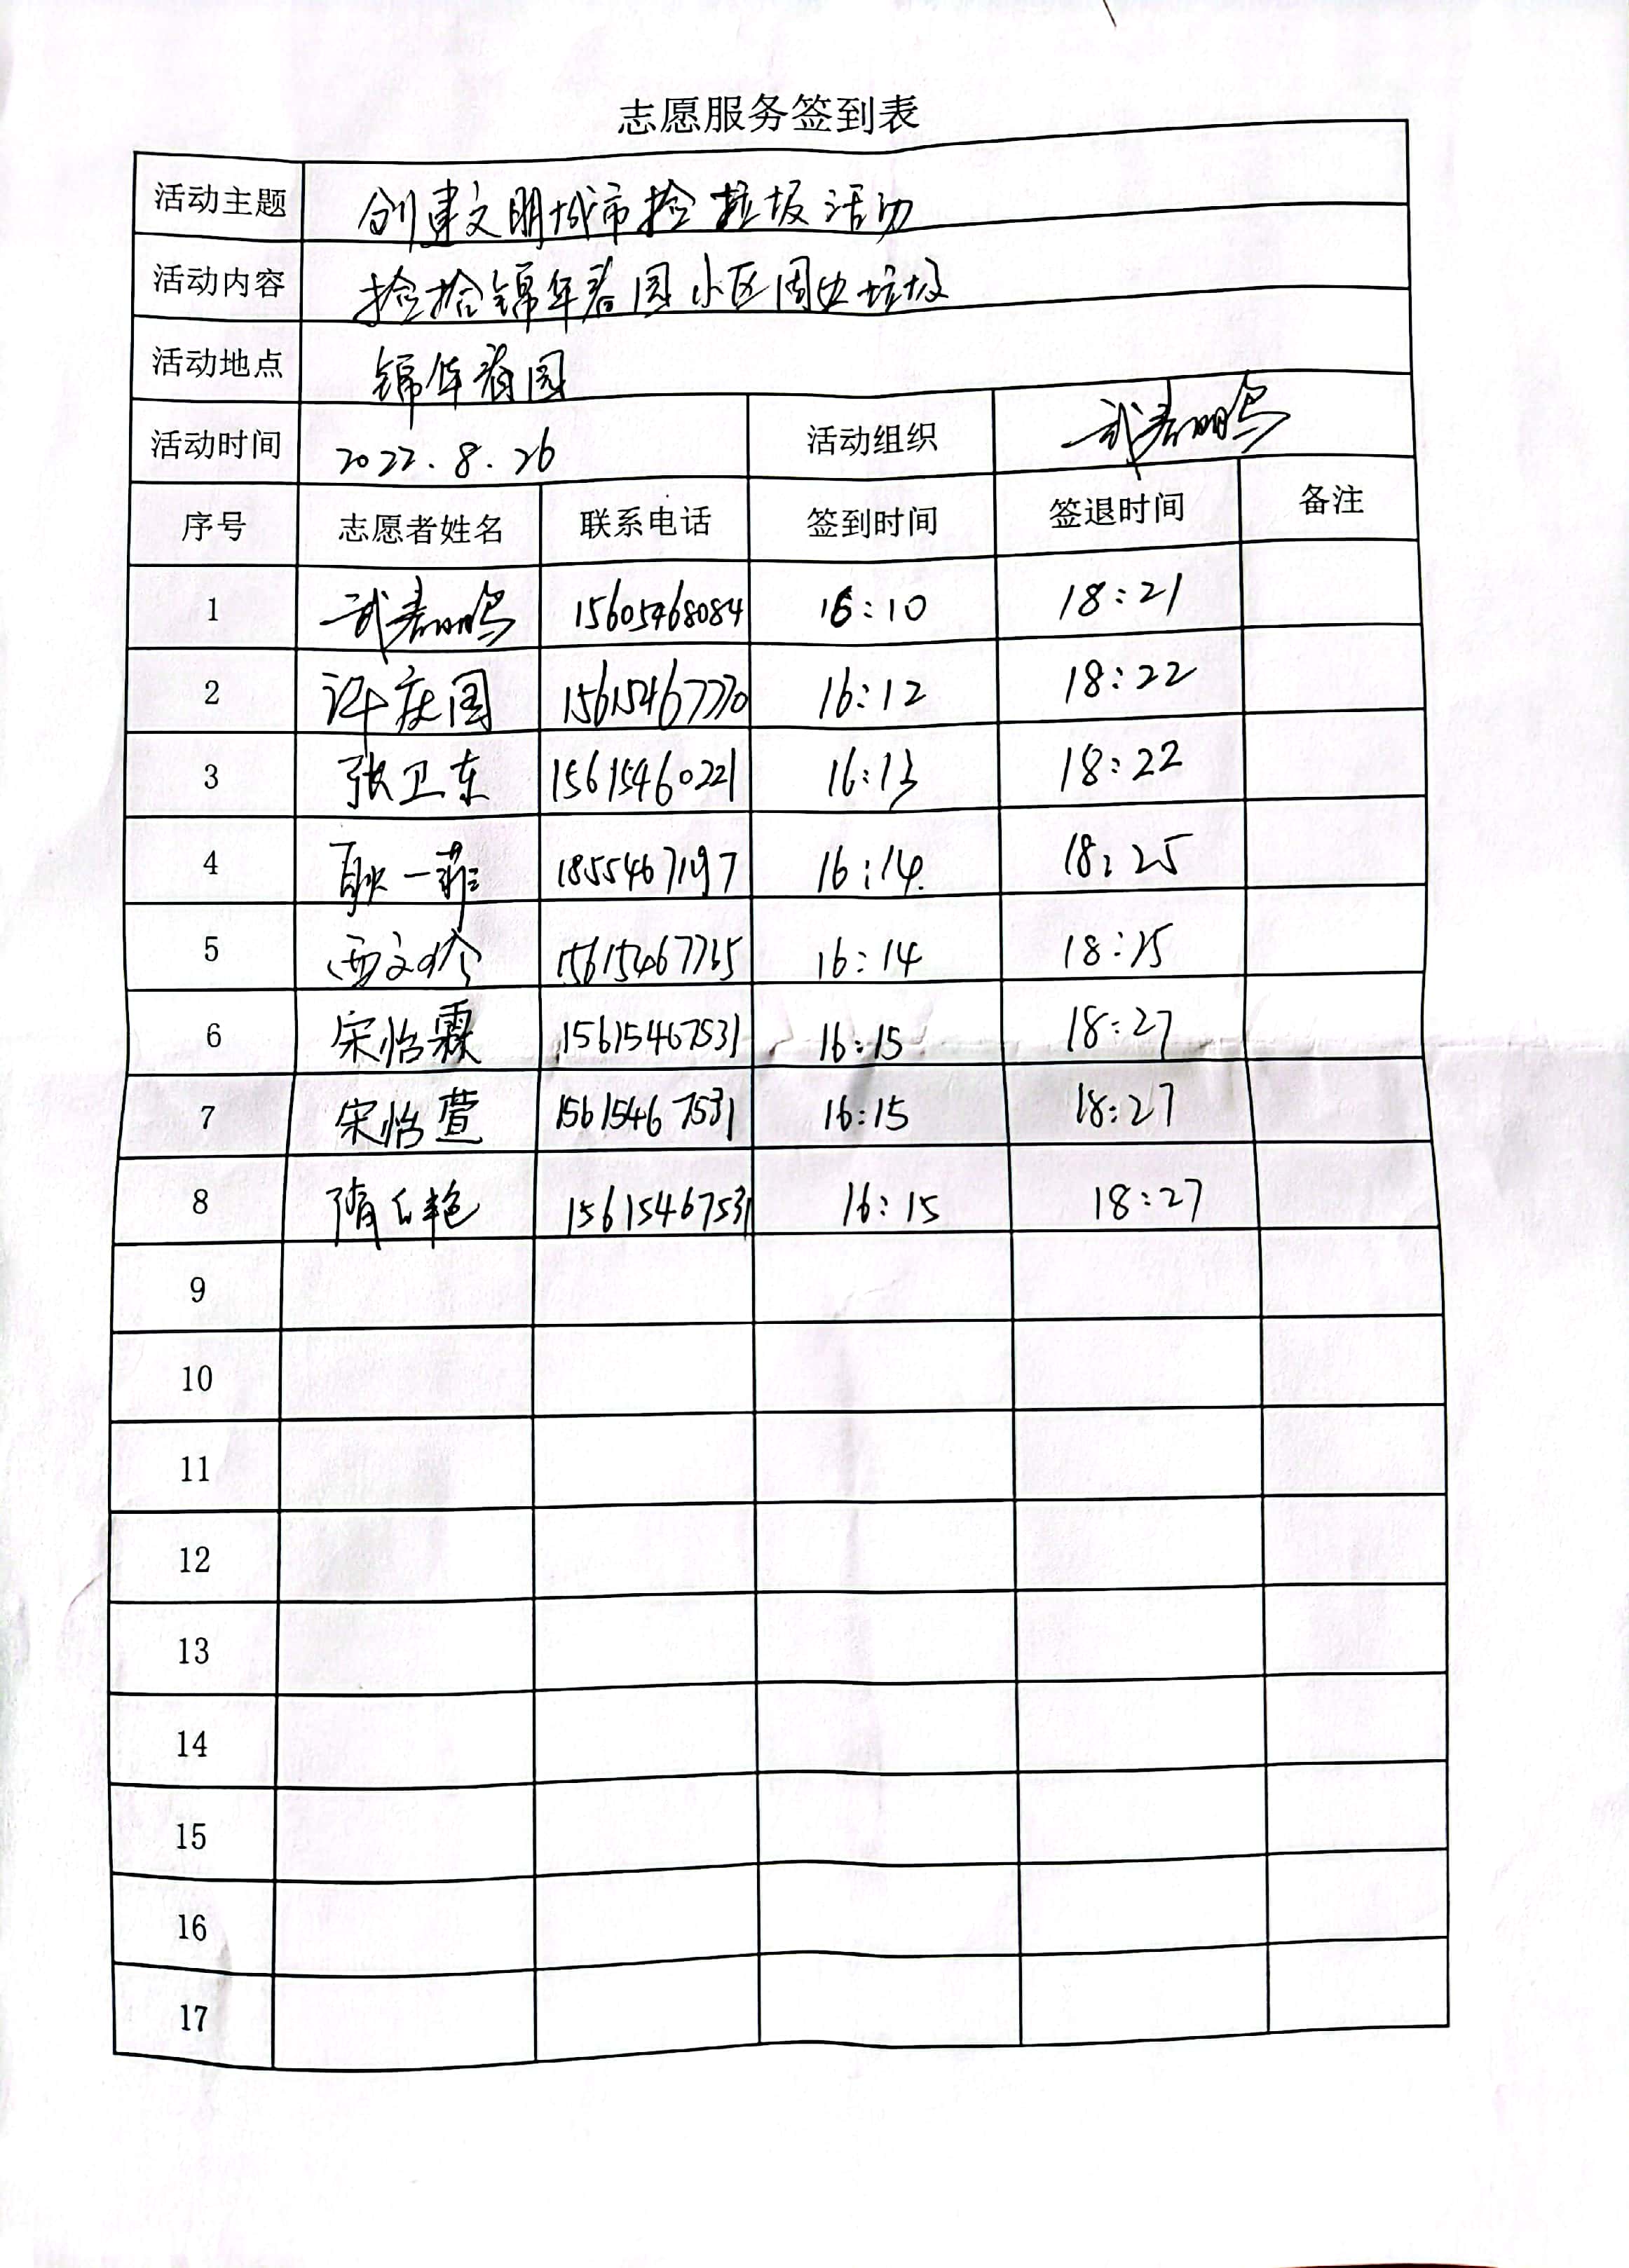 志愿服务签到表
活动主题 创建文明城市捡垃圾活动
活动内容 捡拾锦华春园小区周边垃圾
活动地点 锦华春园
活动时间 2022.8.26 活动组织 武春鹏
序号 志愿者姓名 联系电话 签到时间 签退时间 备注
1 武春鹏 15605468084 16:10 18:21
2 许庆国 15615467770 16:12 18:22
3 张卫东 15615460221 16:13 18:22
4 耿一菲 1855467197 16:14 18:25
5 西文 15615467765 16:14 18:25
6 宋怡霖 15615467531 16:15 18:27
7 宋怡萱 15615467531 16:15 18:27
8 隋红艳 15615467531 16:15 18:27
9
10
11
12
13
14
15
16
17